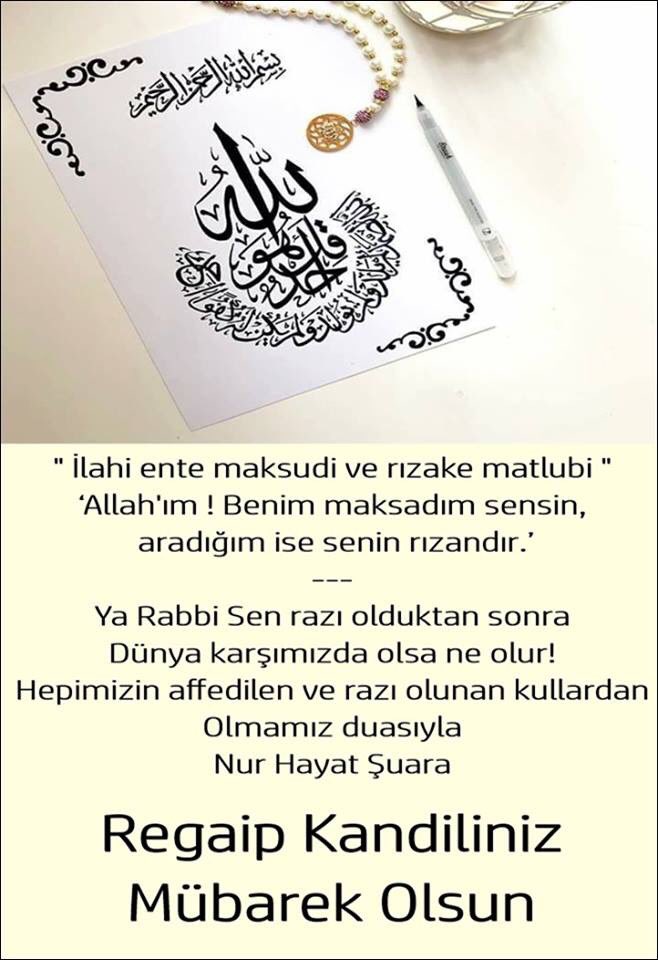 بسم الله الرحمن الرحيم
قل هو الله احد
" İlahi ente maksudi ve rızake matlubi "
‘Allah'ım ! Benim maksadım sensin,
aradığım ise senin rızandır.’
---
Ya Rabbi Sen razı olduktan sonra
Dünya karşımızda olsa ne olur!
Hepimizin affedilen ve razı olunan kullardan
Olmamız duasıyla
Nur Hayat Şuara
Regaip Kandiliniz
Mübarek Olsun